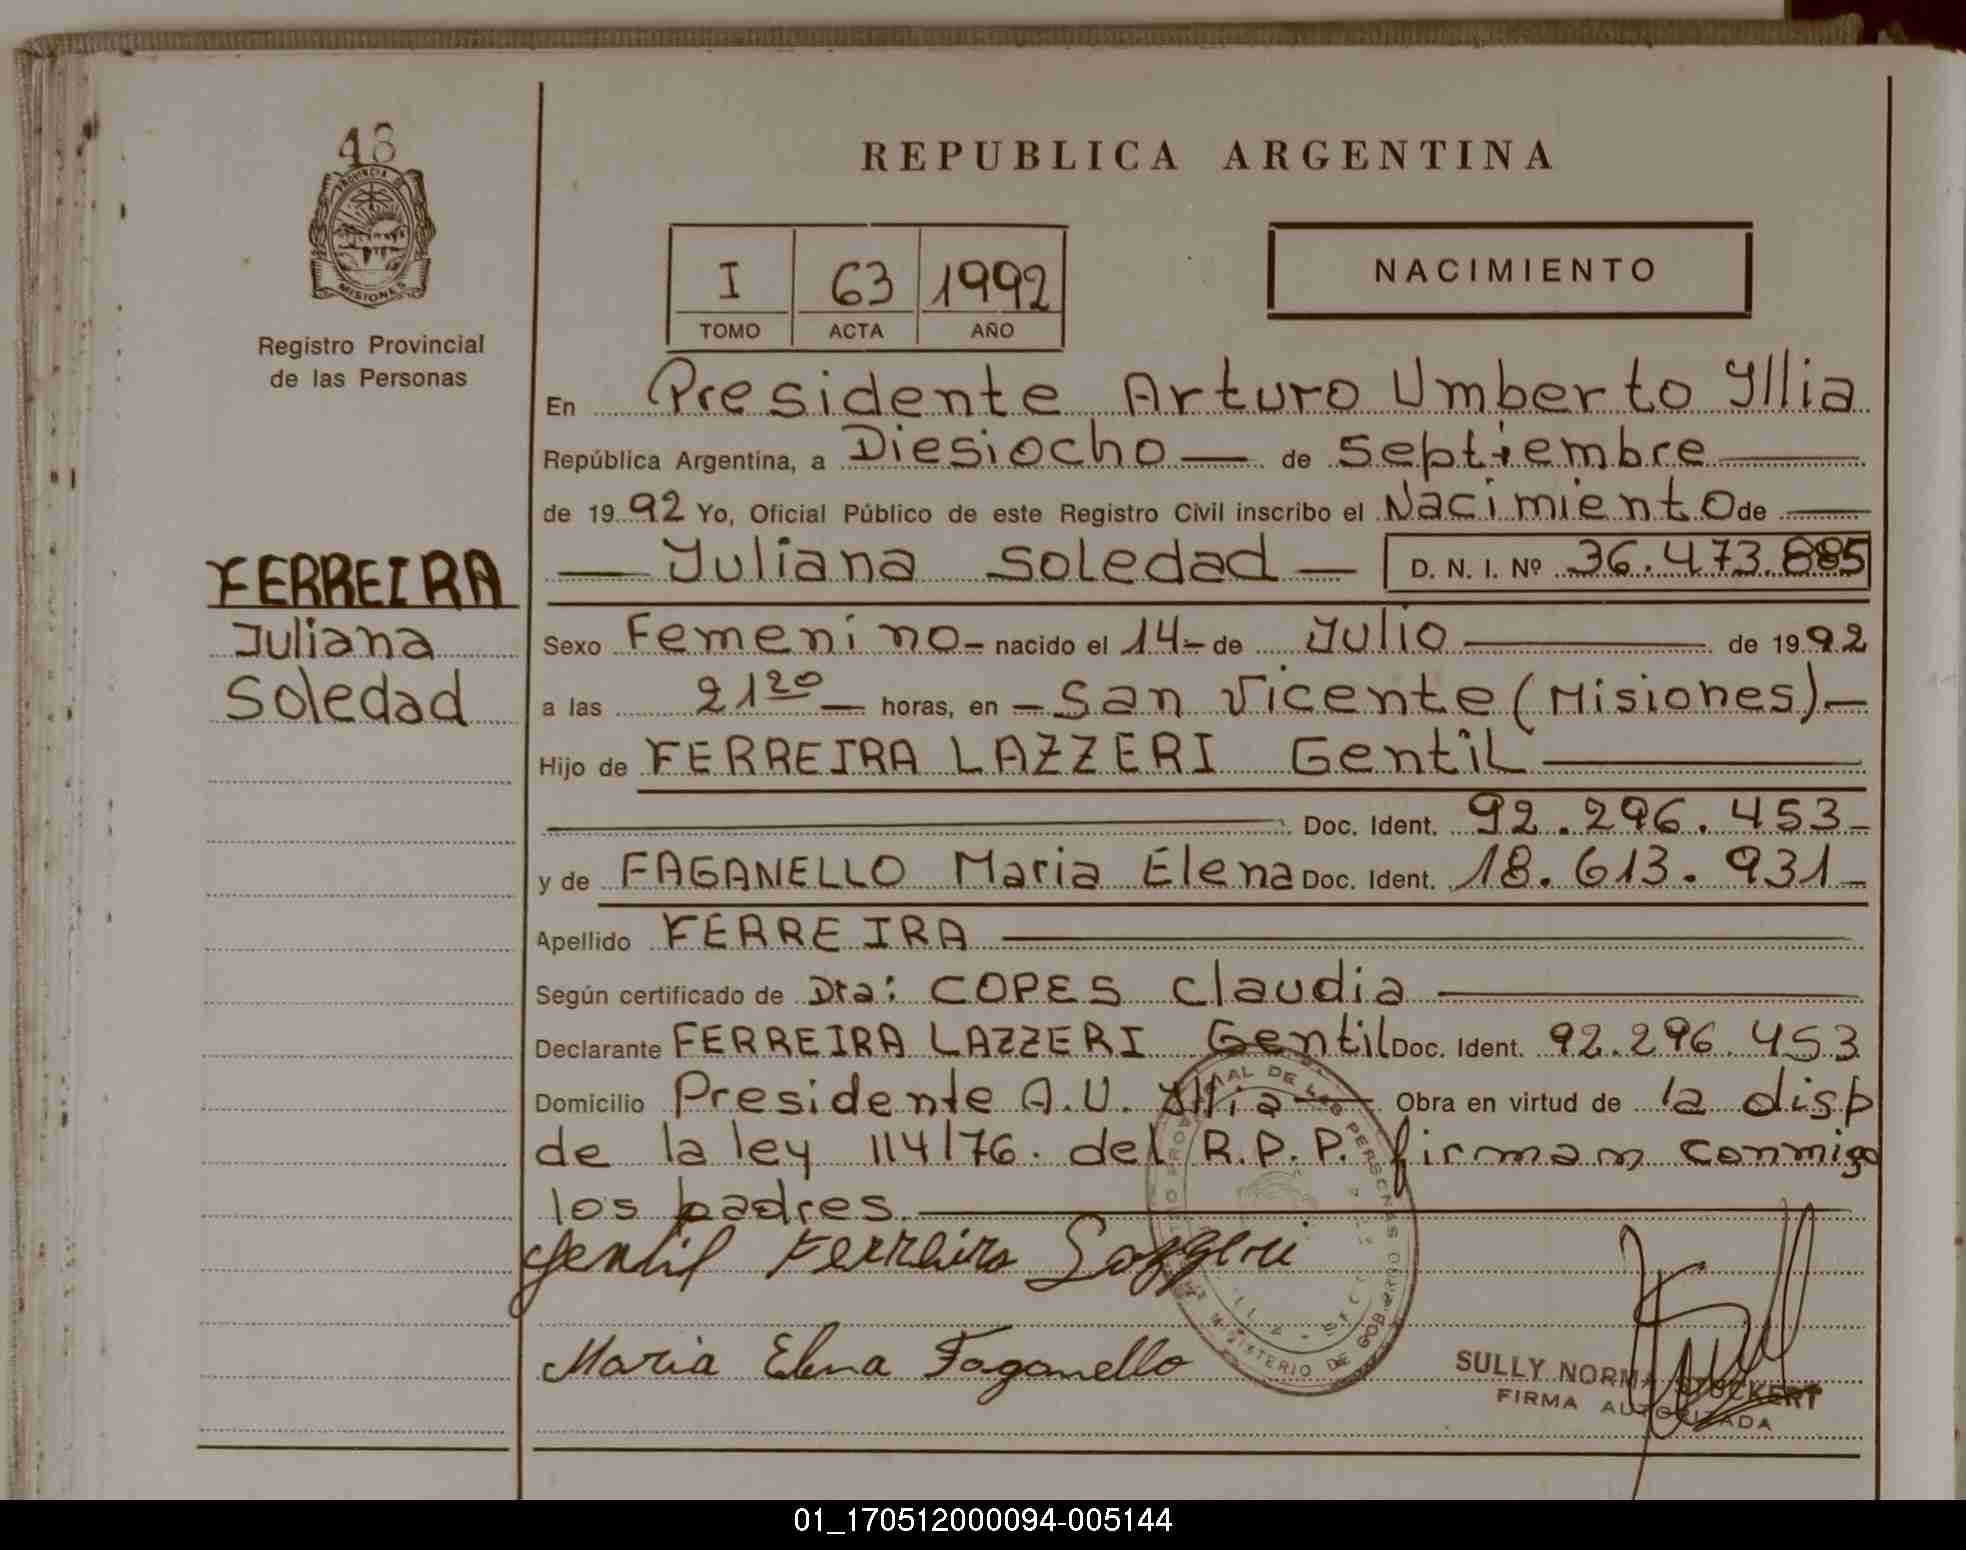 48
PROVINCIA DE
MISIONES
Registro Provincial
de las Personas
FERREIRA
Juliana
Soledad
REPUBLICA ARGENTINA
I 63 1992
TOMO ACTA AÑO
NACIMIENTO
En Presidente Arturo Umberto Yllia
República Argentina, a Diesiocho — de Septiembre —
de 1992 Yo, Oficial Público de este Registro Civil inscribo el Nacimiento de —
— Juliana Soledad — D. N. I. Nº 36.473.885
Sexo Femenino - nacido el 14 - de Julio — de 1992
a las 21 20 — horas, en — San Vicente (Misiones) —
Hijo de FERREIRA LAZZERI Gentil —
— Doc. Ident. 92.296.453 -
y de FAGANELLO Maria Elena Doc. Ident. 18.613.931 -
Apellido FERREIRA —
Según certificado de Dra: COPES Claudia —
Declarante FERREIRA LAZZERI Gentil Doc. Ident. 92.296.453
Domicilio Presidente A.U. Yllia — Obra en virtud de la disp
de la ley 114/76. del R.P.P. firman conmigo
los padres —
Gentil Ferreira Lazzeri
Maria Elena Faganello
SULLY NORMA STOCKERT
FIRMA AUTORIZADA
01_170512000094-005144